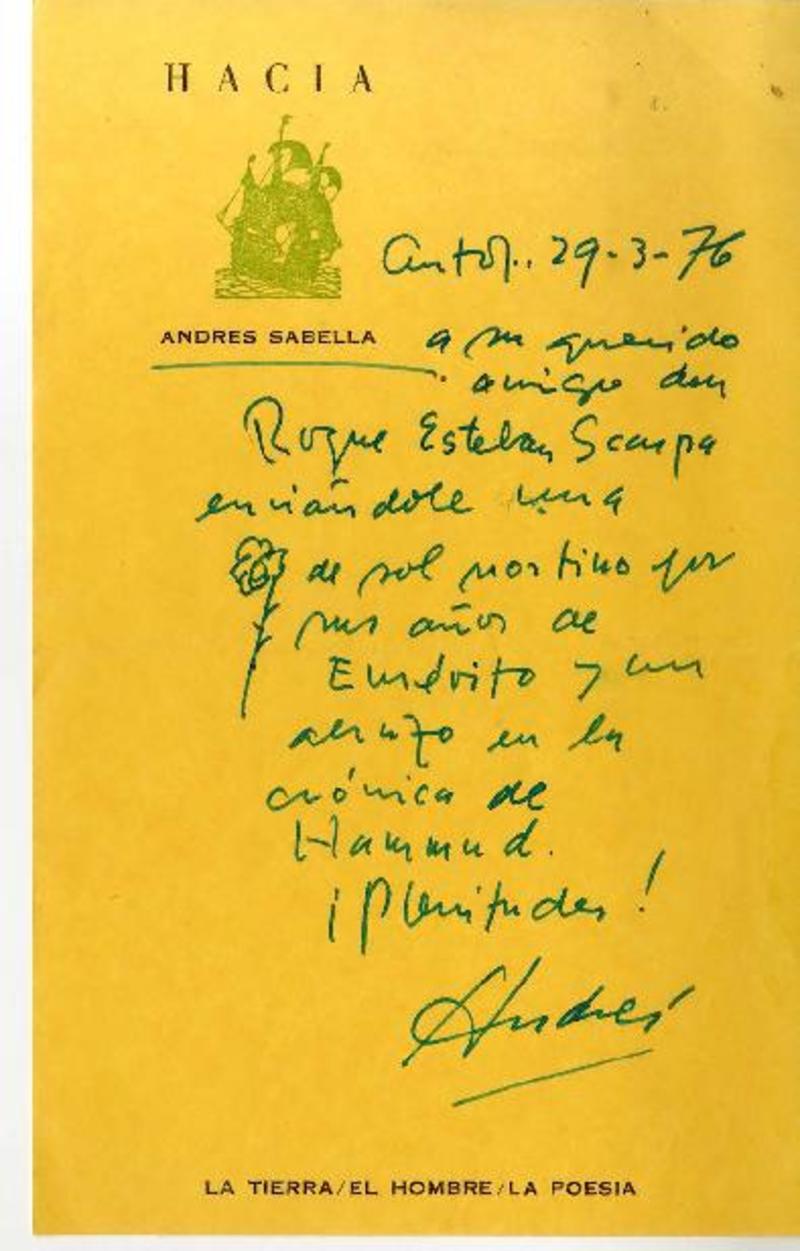 HACIA
Antof. 29-3-76
ANDRES SABELLA
a su querido
amigo don
Roque Esteban Scarpa
enviándole una
de sol nortino por
sus años de
Emérito y un
abrazo en la
crónica de
Hammud.
¡Plenitudes!
Andrés
LA TIERRA/EL HOMBRE/LA POESIA